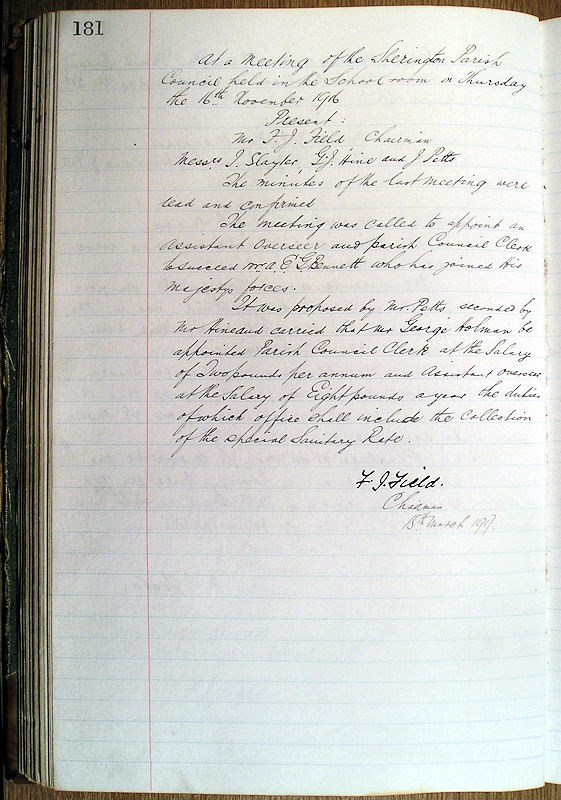 181
At a meeting of the Sherington Parish
Council held in the School room on Thursday
the 16th November 1916
Present :
Mr F. J. Field Chairman
Messrs J. Slayter, G. J. Hine and J Petts
The minutes of the last meeting were
read and confirmed
The meeting was called to appoint an
Assistant Overseer and parish Council Clerk
to succeed Mr. A. E. G. Bennett who has joined His
Majestys forces.
It was proposed by Mr. Petts seconded by
Mr Hine and carried that Mr George Holman be
appointed Parish Council Clerk at the Salary
of Two pounds per annum and Assistant overseer
at the Salary of Eight pounds a year the duties
of which office shall include the Collection
of the special Sanitary Rate.
F. J. Field.
Chairman
15th March 1917.